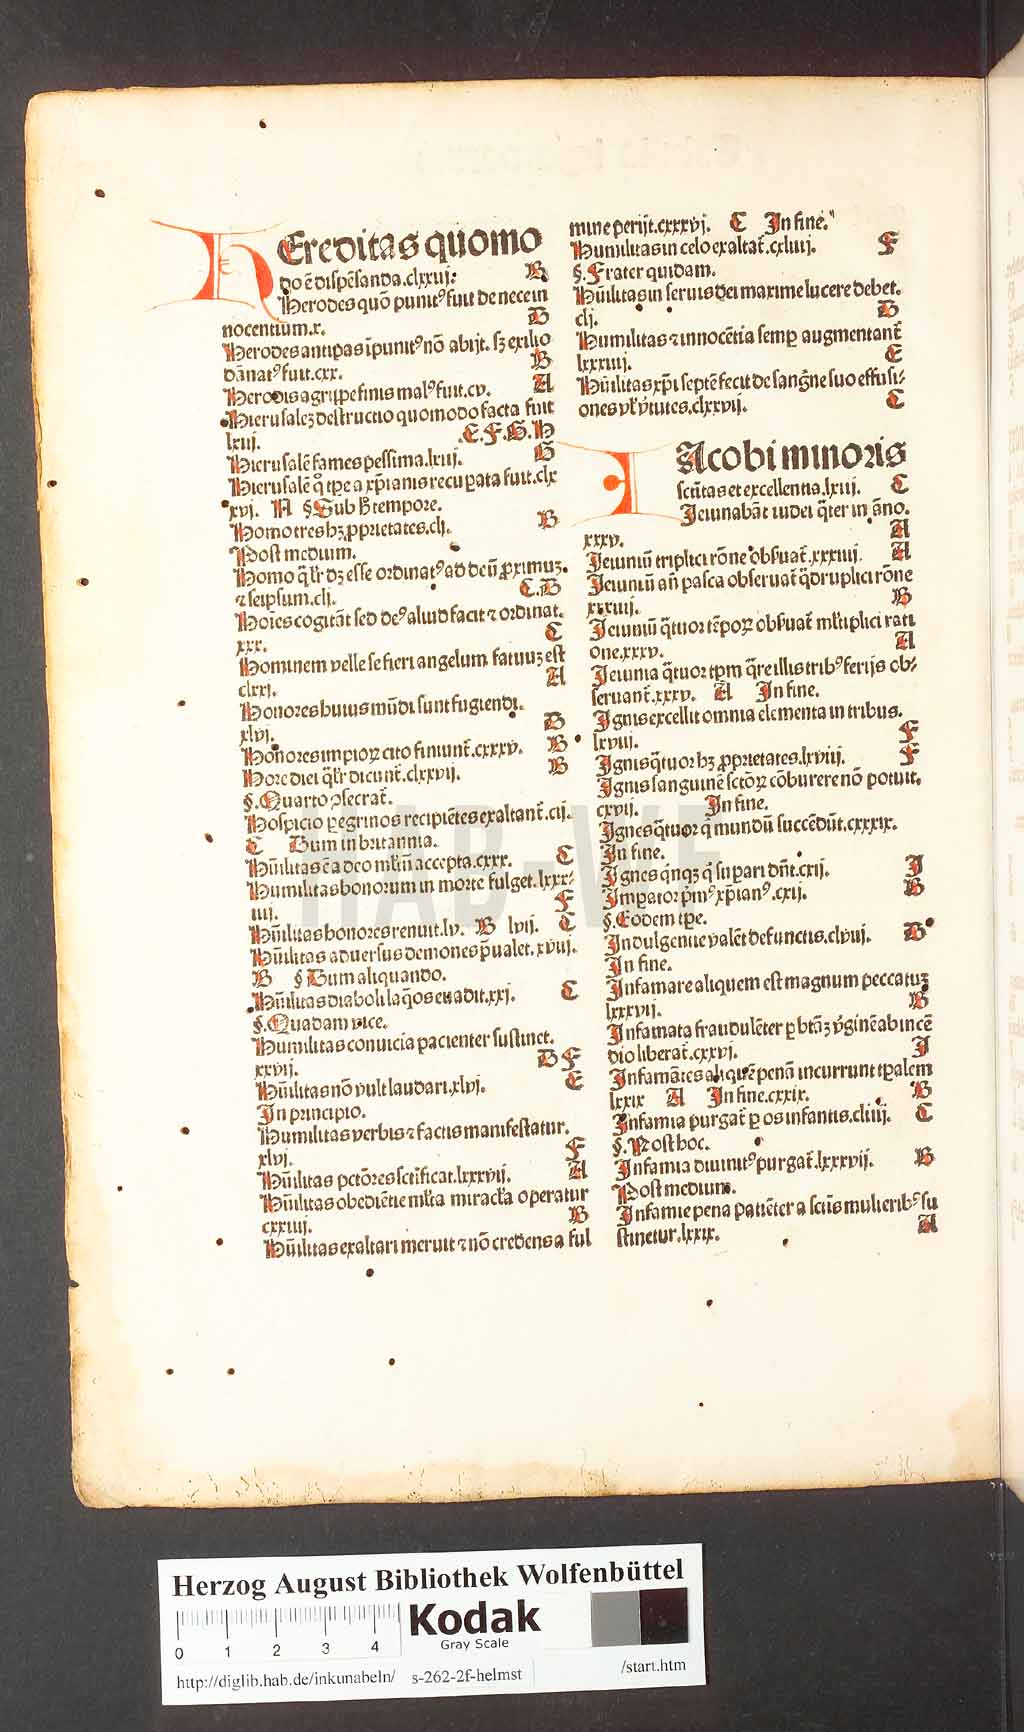 HEreditas quomo
do ē dispēsanda.clxxij: B
Herodes quō punitꝰ fuit de nece in
nocentium.x. B
Herodes antipas īpunitꝰ nō abijt. sꝫ exilio
dānatꝰ fuit.cxx. B
Herodis agrippe finis malꝰ fuit.cv. A
Hierusaleꝫ destructio quomodo facta fuit
lxiij. .E.F.G.H
Hierusalē fames pessima.lxiij. G
Hierusalē q̄ tpe a xp̄ianis recuperata fuit.clx
xvi. A §Sub h̄ tempore.
Homo tres hꝫ ꝓprietates.clj. B
Post medium.
Homo q̄lr̄ dꝫ esse ordinatꝰ ad deū ꝓximuꝫ.
⁊ seipsum.clj. C.D
Hoīes cogitāt sed deꝰ aliud facit ⁊ ordinat.
xxx. C
Hominem velle se fieri angelum fatuuꝫ est
clxxj. A
Honores huius mūdi sunt fugiendi.
xlvj. B
Honores impioꝝ cito finiunt̄.cxxxv. B
Hore diei q̄lr̄ dicunt̄.clxxvij. B
§.Quarto ꝯsecrat̄.
Hospicio ꝑegrinos recipiētes exaltant̄.cij.
C Dum in britannia.
Hūilitas ē a deo ml̄tū accepta.cxxx. C
Humilitas bonorum in morte fulget.lxxx-
iiij. F
Hūilitas honores renuit.lv. B lvij. C
Hūilitas aduersus demones p̄ualet.xvij.
B § Dum aliquando.
Hūilitas diaboli laq̄os euadit.xxj. C
§.Quadam vice.
Humilitas conuicia pacienter sustinet.
xxvij. D F
Hūilitas nō vult laudari.xlvj. E
In principio.
Humilitas verbis ⁊ factis manifestatur.
xlvj. F
Hūilitas pctōres sctificat.lxxxvij. A
Hūilitas obediētie ml̄ta miracl̄a operatur
cxxiiij. B
Hūilitas exaltari meruit ⁊ nō credens a ful
mine perijt.cxxxvj. C In fine.
Humilitas in celo exaltat̄.cxliij. F
§.Frater quidam.
Hūilitas in seruis dei maxime lucere debet.
clj. D
Humilitas ⁊ innocētia semꝑ augmentant̄
lxxxiiij. E
Hūilitas xp̄i septē fecit de sanḡne suo effusi-
ones vl̄ v̄tutes.clxxvij. C
IAcobi minoris
sctītas et excellentia.lxiij. C
Jeiunabāt iudei q̄ter in āno.
xxxv. A
Jeiuniū triplici rōne obseruat̄.xxxiiij. A
Jeiuniū an̄ pasca obseruat̄ q̄druplici rōne
xxxiiij. B
Jeiuniū q̄tuor tēpoꝝ obseruat̄ ml̄tiplici rati
one.xxxv. A
Jeiunia q̄tuor tpm q̄re illis tribꝰ ferijs ob-
seruant̄.xxxv. A In fine.
Ignis excellit omnia elementa in tribus.
lxviij. F
Ignis q̄tuor hꝫ ꝓprietates.lxviij. F
Ignis sanguinē sctōꝝ cōburere nō potuit.
cxvij. In fine.
Ignes q̄tuor q̄ mundū succēdūt.cxxxix.
In fine.
Ignes q̄nqꝫ q̄ supari dn̄t.cxij. J
Imꝑator p̄mꝰ xp̄ianꝰ.cxij. B
§.Eodem tpe.
Indulgentie valēt defunctis.clvij. B
In fine.
Infamare aliquem est magnum peccatuꝫ
lxxxvij. B
Infamata fraudulēter ꝑ btāꝫ v̄ginē ab incē
dio liberat̄.cxxvj. J
Infamātes aliquē penā incurrunt tpalem
lxxix A In fine.cxxix. B
Infamia purgat̄ ꝑ os infantis.cliiij. C
§.Post hoc.
Infamia diuinitꝰ purgat̄.lxxxvij. B
Post medium.
Infamie pena patiēter a sctīs mulieribꝰ su
stinetur.lxxix. A
HAB-WF
Herzog August Bibliothek Wolfenbüttel
0 1 2 3 4
Kodak
Gray Scale
http://diglib.hab.de/inkunabeln/ s-262-2f-helmst /start.htm